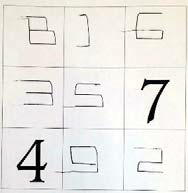 8 1 6
3 5 7
4 9 2